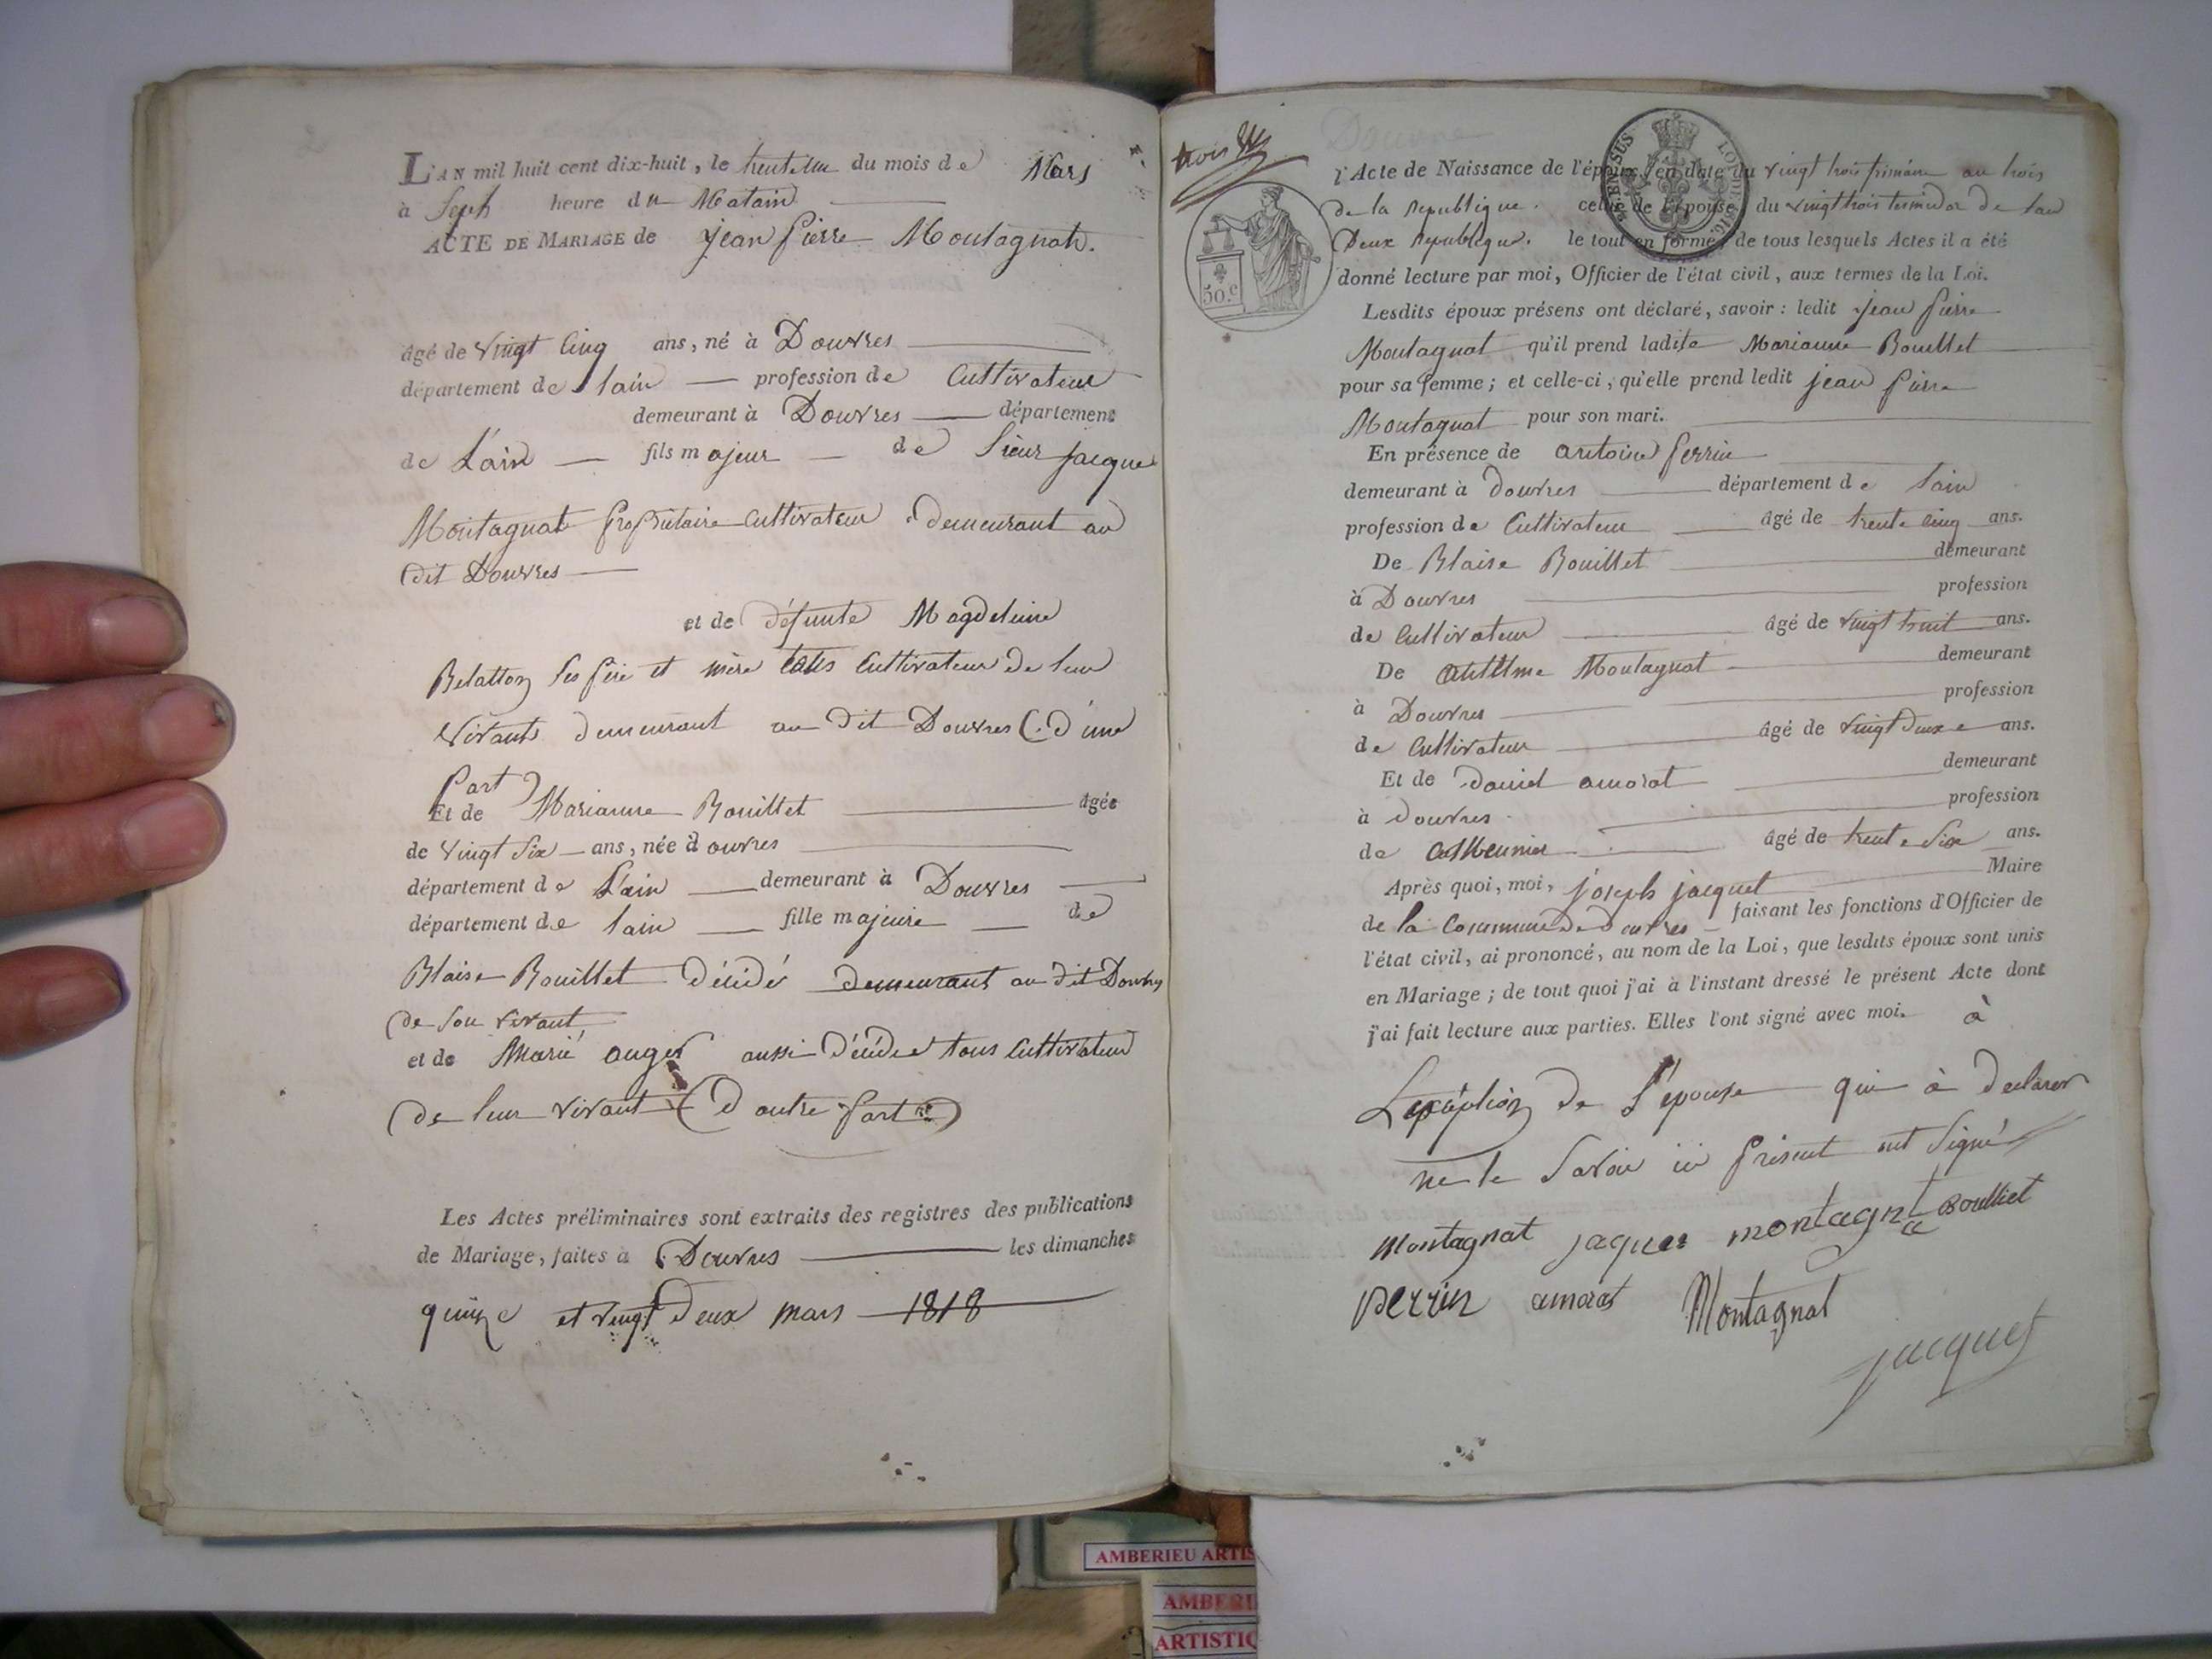 L'AN mil huit cent dix-huit, le trente un du mois de Mars
à Sept heure du Matain
ACTE DE MARIAGE de jean pierre Montagnat.
âgé de vingt cinq ans, né à Douvres
département de lain profession de Cultivateur
demeurant à Douvres département
de L'ain fils majeur de Sieur jacque
Montagnat propriétaire cultivateur demeurant au
dit Douvres
et de défunte Magdeleine
Belatton ses père et mère tous Cultivateur de leur
vivants demeurant au dit Douvres (d'une
part)
Et de Marianne Bouillet âgée
de vingt Six ans, née à douvres
département de L'ain demeurant à Douvres
département de lain fille majeure de
Blaise Bouillet décédé demeurant au dit Douvres
de son vivant
et de Marie auger aussi décédée tous Cultivateur
de leur vivant (d'autre part)
Les Actes préliminaires sont extraits des registres des publications
de Mariage, faites à Douvres les dimanches
quinze et vingt deux mars 1818
trois
50.c
l'Acte de Naissance de l'époux, en date du vingt trois frimaire an trois
de la republique. celui de l'épouse du vingt trois termidor de l'an
Deux republique. le tout en forme; de tous lesquels Actes il a été
donné lecture par moi, Officier de l'état civil, aux termes de la Loi.
Lesdits époux présens ont déclaré, savoir: ledit jean pierre
Montagnat qu'il prend ladite Marianne Bouillet
pour sa femme; et celle-ci, qu'elle prend ledit jean pierre
Montagnat pour son mari.
En présence de antoine perrin
demeurant à douvres département de lain
profession de Cultivateur âgé de trente cinq ans.
De Blaise Bouillet demeurant
à Douvres profession
de Cultivateur âgé de vingt huit ans.
De Montagnat demeurant
à Douvres profession
de Cultivateur âgé de vingt deux ans.
Et de daniel amorat demeurant
à douvres profession
de âgé de trente Six ans.
Après quoi, moi, joseph jacquet Maire
de la Commune de douvres faisant les fonctions d'Officier de
l'état civil, ai prononcé, au nom de la Loi, que lesdits époux sont unis
en Mariage; de tout quoi j'ai à l'instant dressé le présent Acte dont
j'ai fait lecture aux parties. Elles l'ont signé avec moi. à
L'exception de l'epouse qui à declarer
ne le Savoir présent ont Signé
montagnat jaques montagnat Boulliet
perrin amorat Montagnat
jacquet
AMBERIEU ARTIS
AMBERI
ARTISTIQ